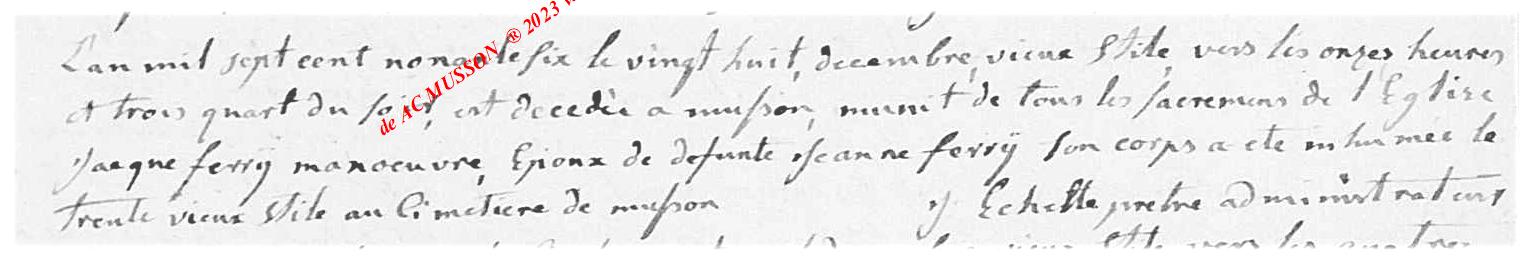 L'an mil sept cent nonante six le vingt huit, decembre, vieux Stile, vers les onzes heures
et trois quart du soir, est decedée a musson, munit de tous les sacremens de l'Eglise
Jacque ferrÿ manoeuvre, Epoux de defunte Jeanne ferrÿ son corps a ete inhumée le
trente vieux Stile au Cimetiere de musson J. Echette pretre administrateurs
de ACMUSSON ® 2023